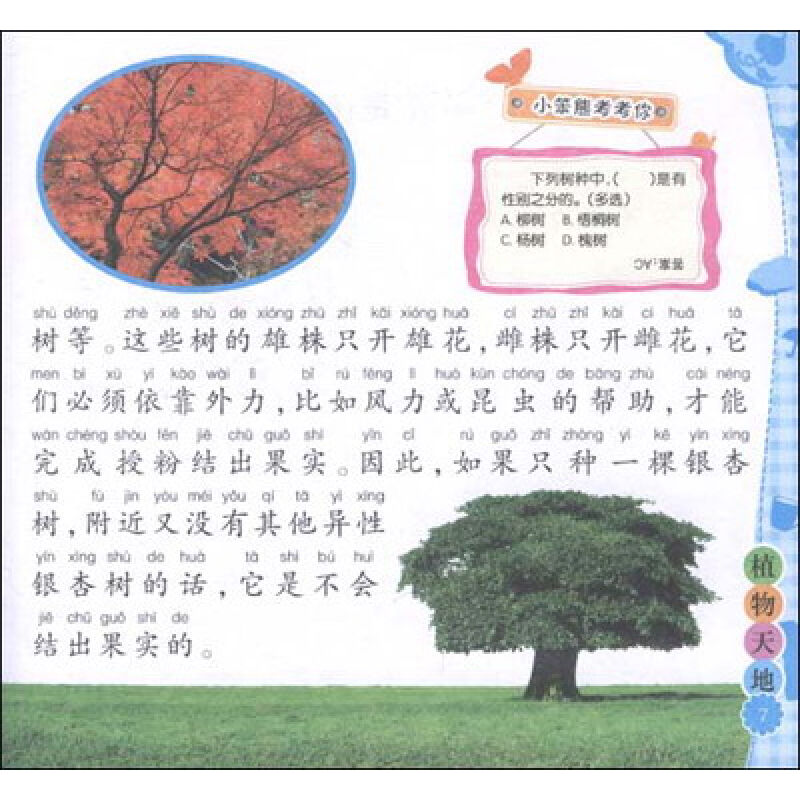 小笨熊考考你
下列树种中，（　　）是有
性别之分的。（多选）
A. 柳树　B. 梧桐树
C. 杨树　D. 槐树
答案：AC
shù děng zhè xiē shù de xióng zhū zhǐ kāi xióng huā cí zhū zhǐ kāi cí huā tā
树等。这些树的雄株只开雄花，雌株只开雌花，它
men bì xū yī kào wài lì bǐ rú fēng lì huò kūn chóng de bāng zhù cái néng
们必须依靠外力，比如风力或昆虫的帮助，才能
wán chéng shòu fěn jiē chū guǒ shí yīn cǐ rú guǒ zhǐ zhòng yì kē yín xìng
完成授粉结出果实。因此，如果只种一棵银杏
shù fù jìn yòu méi yǒu qí tā yì xìng
树，附近又没有其他异性
yín xìng shù de huà tā shì bú huì
银杏树的话，它是不会
jiē chū guǒ shí de
结出果实的。
植物天地
7